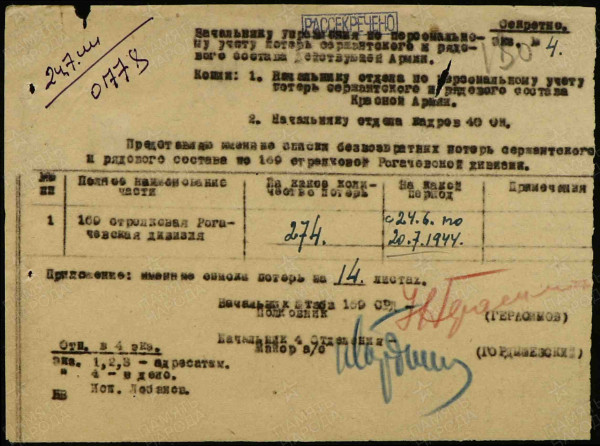 РАССЕКРЕЧЕНО
Секретно.
экз. № 4.
24.7.
0778
Начальнику управления по персонально-
му учету потерь сержантского и рядо-
вого состава действующей Армии.
Копии: 1. Начальнику отдела по персональному учету
потерь сержантского и рядового состава
Красной Армии.
2. Начальнику отдела кадров 40 СК.
Представляю именные списки безвозвратных потерь сержантского
и рядового состава по 169 стрелковой Рогачевской дивизии.
№№
пп
Полное наименование
части
На какое коли-
чество потерь
На какой
период
Примечания
1
169 стрелковая Рога-
чевская дивизия
274.
с 24.6. по
20.7.1944.
Приложение: именные списки потерь на 14. листах.
Начальник штаба 169 СРД -
Полковник
(ГЕРАСИМОВ)
Начальник 4 Отделения -
Майор а/с
(ГОРДИЕВСКИЙ)
Отп. в 4 экз.
экз. 1,2,3 - адресатам.
" 4 - в дело.
Исп.